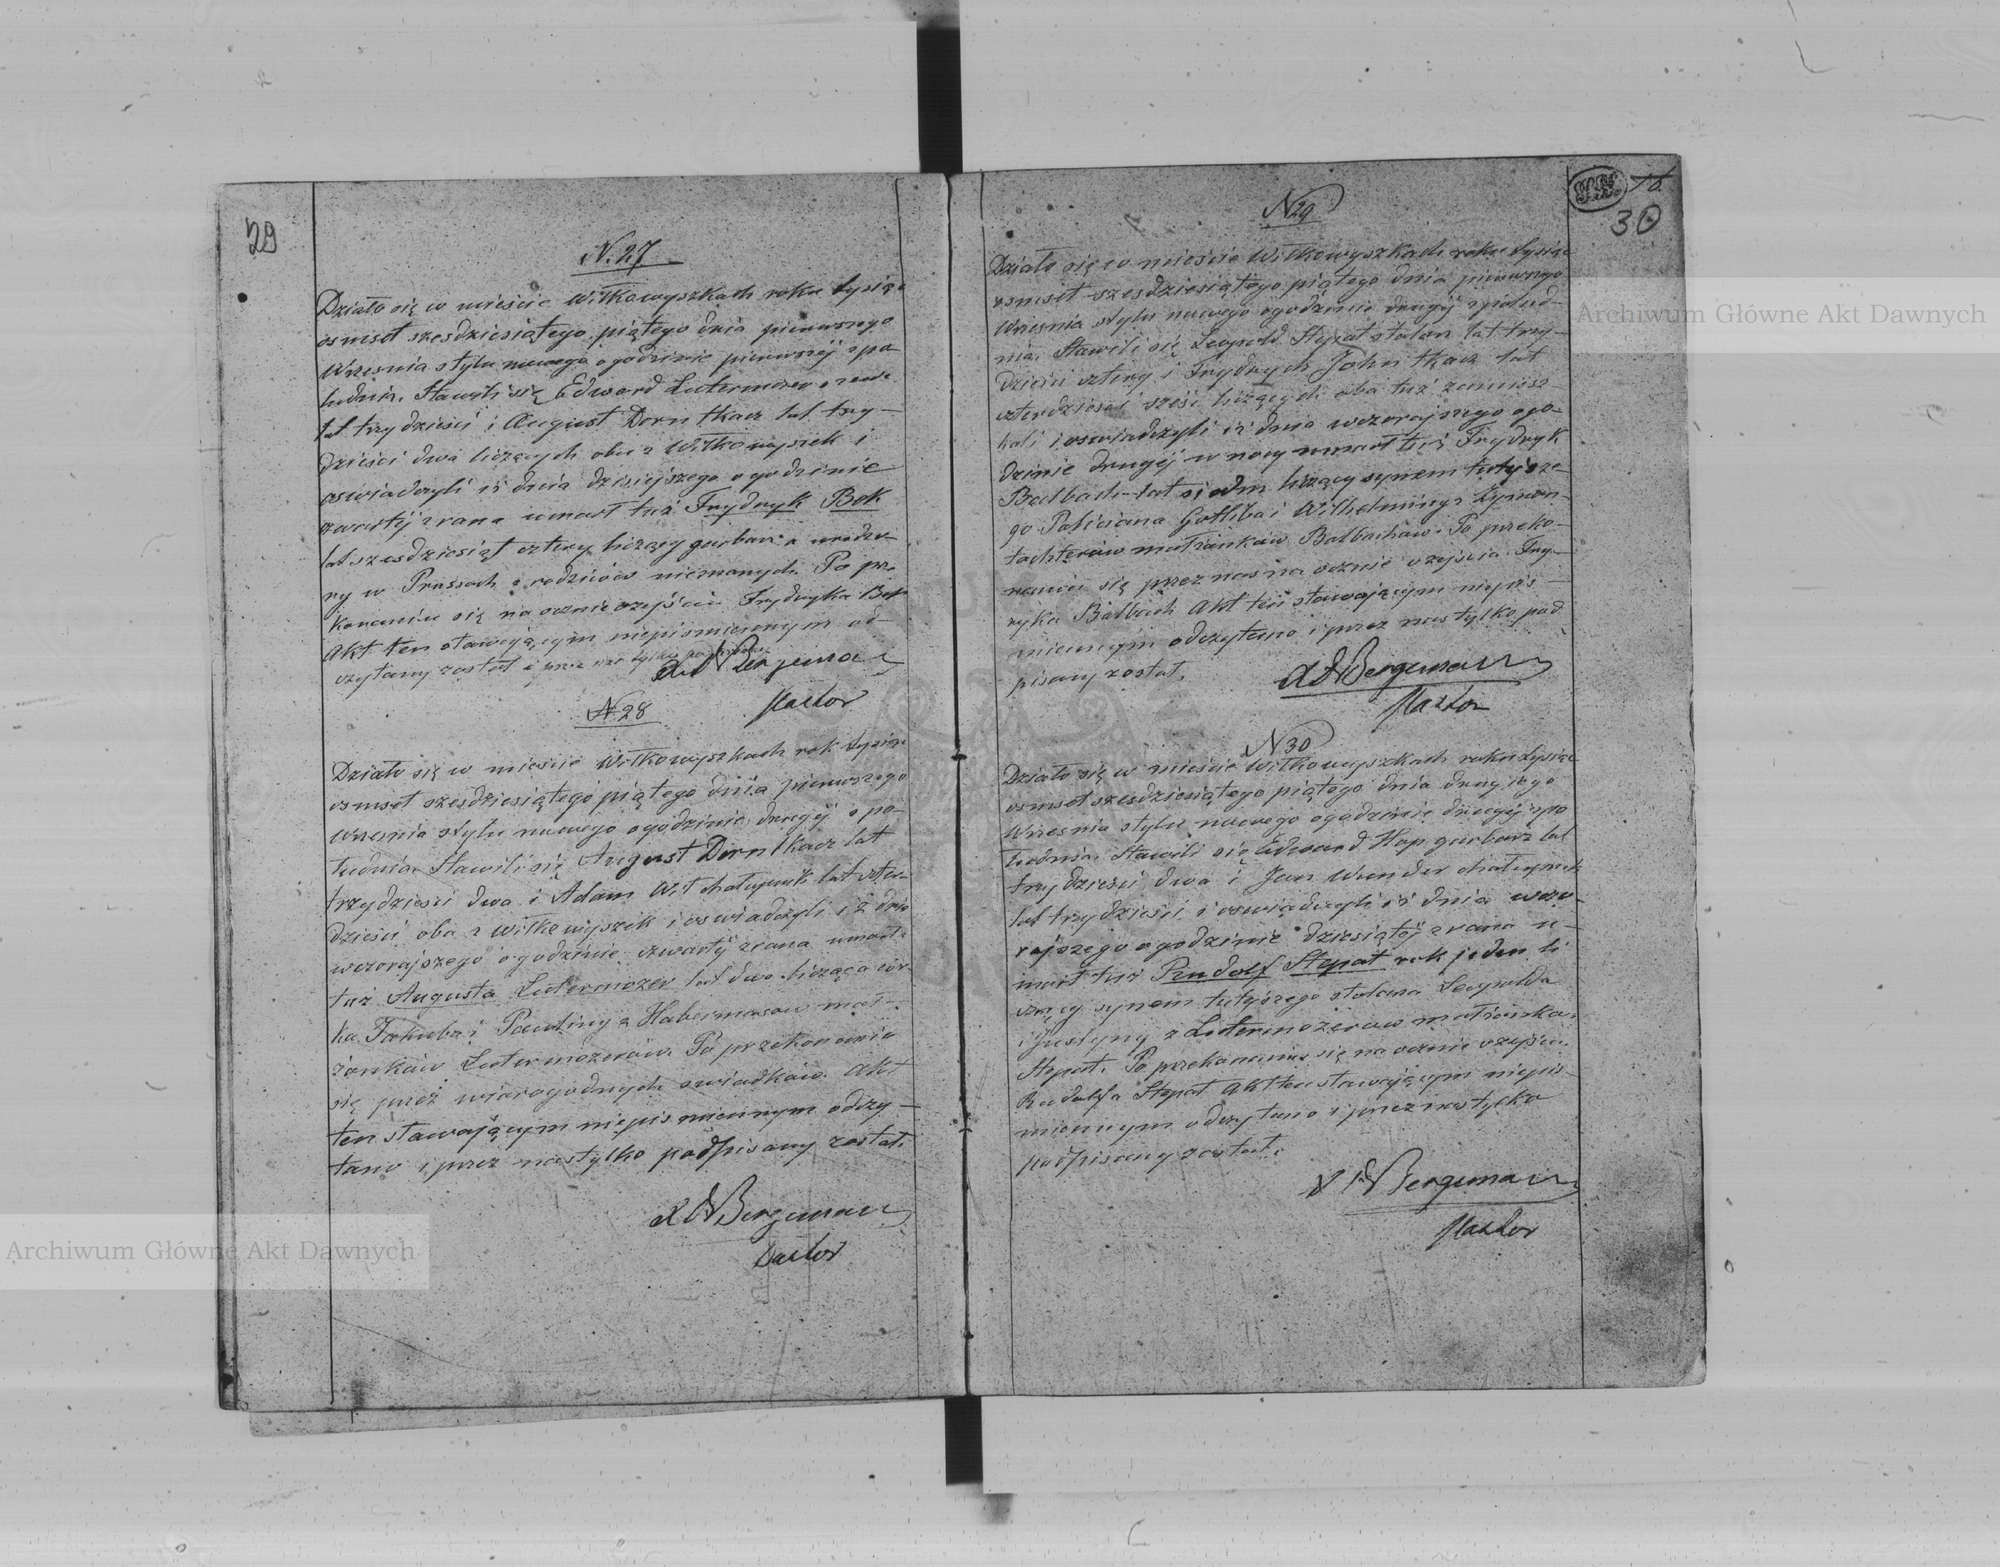 29
N. 27
Działo się w mieście Wiłkowyszkach roku tysiąc
osmset szesdziesiątego piątego dnia pierwszego
Wrzesnia stylu nowego o godzinie pierwszéj z po
łudnia. Stawili się Edward Lutermozer
lat trzydzieści i August Dorn tkacz lat trzy-
dzieści dwa liczących oba z Wiłkowyszek i
oswiadczyli iż dnia dzisiejszego o godzinie
czwartéj z rana umarł tuż Frydryk Bek
lat szesdziesiąt cztery liczący garbarz urodzo-
ny w Prussach z rodziców nieznanych. Po prze
konaniu się na ocznie o zejściu Frydryka Bek
Akt ten stawającym niepismiennym od-
czytany został i przez nas tylko podpisany
Bergeman
Pastor
N 28
Działo się w mieście Wiłkowyszkach rok tysiąc
osmset szesdziesiątego piątego dnia pierwszego
Wrzesnia stylu nowego o godzinie drugiéj z po-
łudnia. Stawili się August Dorn tkacz lat
trzydzieści dwa i Adam Wit chałupnik lat czter-
dzieści oba z Wiłkowyszek i oswiadczyli iż dnia
wczorajszego o godzinie czwartéj z rana umarła
tuż Augusta Lutermozer lat dwa licząca cór-
ka Jakuba i Pauliny z Habermanow mał-
żonków Lutermozerów. Po przekonaniu
się przez wiarogodnych swiadków. Akt
ten stawającym niepismiennym odczy-
tano i przez nas tylko podpisany został.
Bergeman
Pastor
30
N 29
Działo się w mieście Wiłkowyszkach roku tysiąc
osmset szesdziesiątego piątego dnia pierwszego
Wrzesnia stylu nowego o godzinie drugiéj z połud-
nia. Stawili się Leopold Stepat stolarz lat trzy-
dzieści cztery i Frydrych John tkacz lat
czterdzieści sześć liczących oba tuż zamiesz-
kali i oswiadczyli iż dnia wczorajszego o go-
dzinie drugéj w nocy umarł tuż Frydryk
Balbach lat siedm liczący synem tutejsze-
go Gotliba i Wilhelminy z
małżonków Balbachów. Po przeko-
naniu się przez nas na ocznie o zejściu Fry-
ryka Balbach Akt ten stawającym niepis-
miennym odczytano i przez nas tylko pod
pisany został.
Bergeman
Pastor
N 30
Działo się w mieście Wiłkowyszkach roku tysiąc
osmset szesdziesiątego piątego dnia drugiego
Wrzesnia stylu nowego o godzinie drugéj z po
łudnia. Stawili się Edward Hop garbarz lat
trzydzieści dwa i Jan Wunder chałupnik
lat trzydzieści i oswiadczyli iż dnia wczo-
rajszego o godzinie dziesiątéj z rana u-
marł tuż Rudolf Stepat rok jeden li
czący synem tutejszego stolarza Leopolda
i Justyny z Lutermozerow małżonków
Stepat. Po przekonaniu się na ocznie o zejściu
Rudolfa Stepat Akt ten stawającym niepis-
miennym odczytano i przez nas tylko
podpisany został.
Bergeman
Pastor
Archiwum Główne Akt Dawnych
Archiwum Główne Akt Dawnych